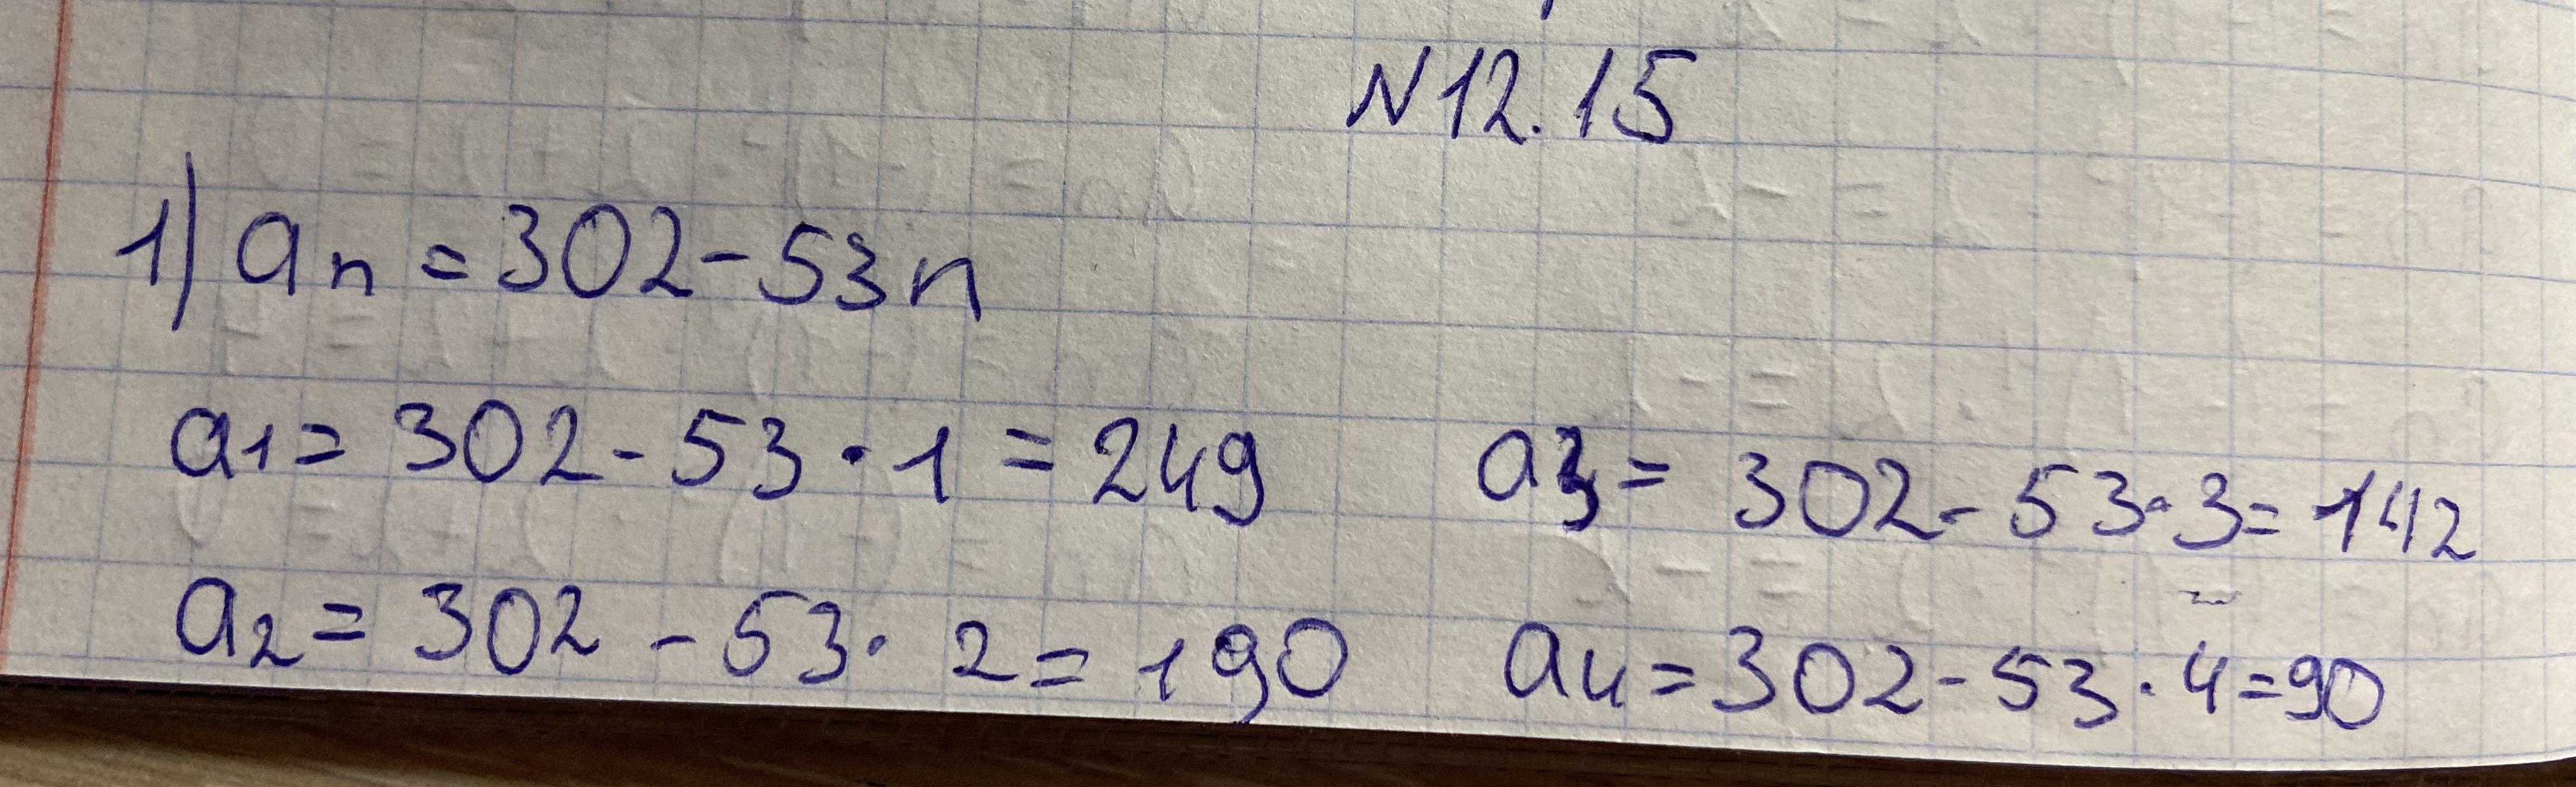 N12.15
1) an = 302-53n
a1= 302-53·1=249
a2= 302-53·2=190
a3= 302-53·3=142
a4=302-53·4=90